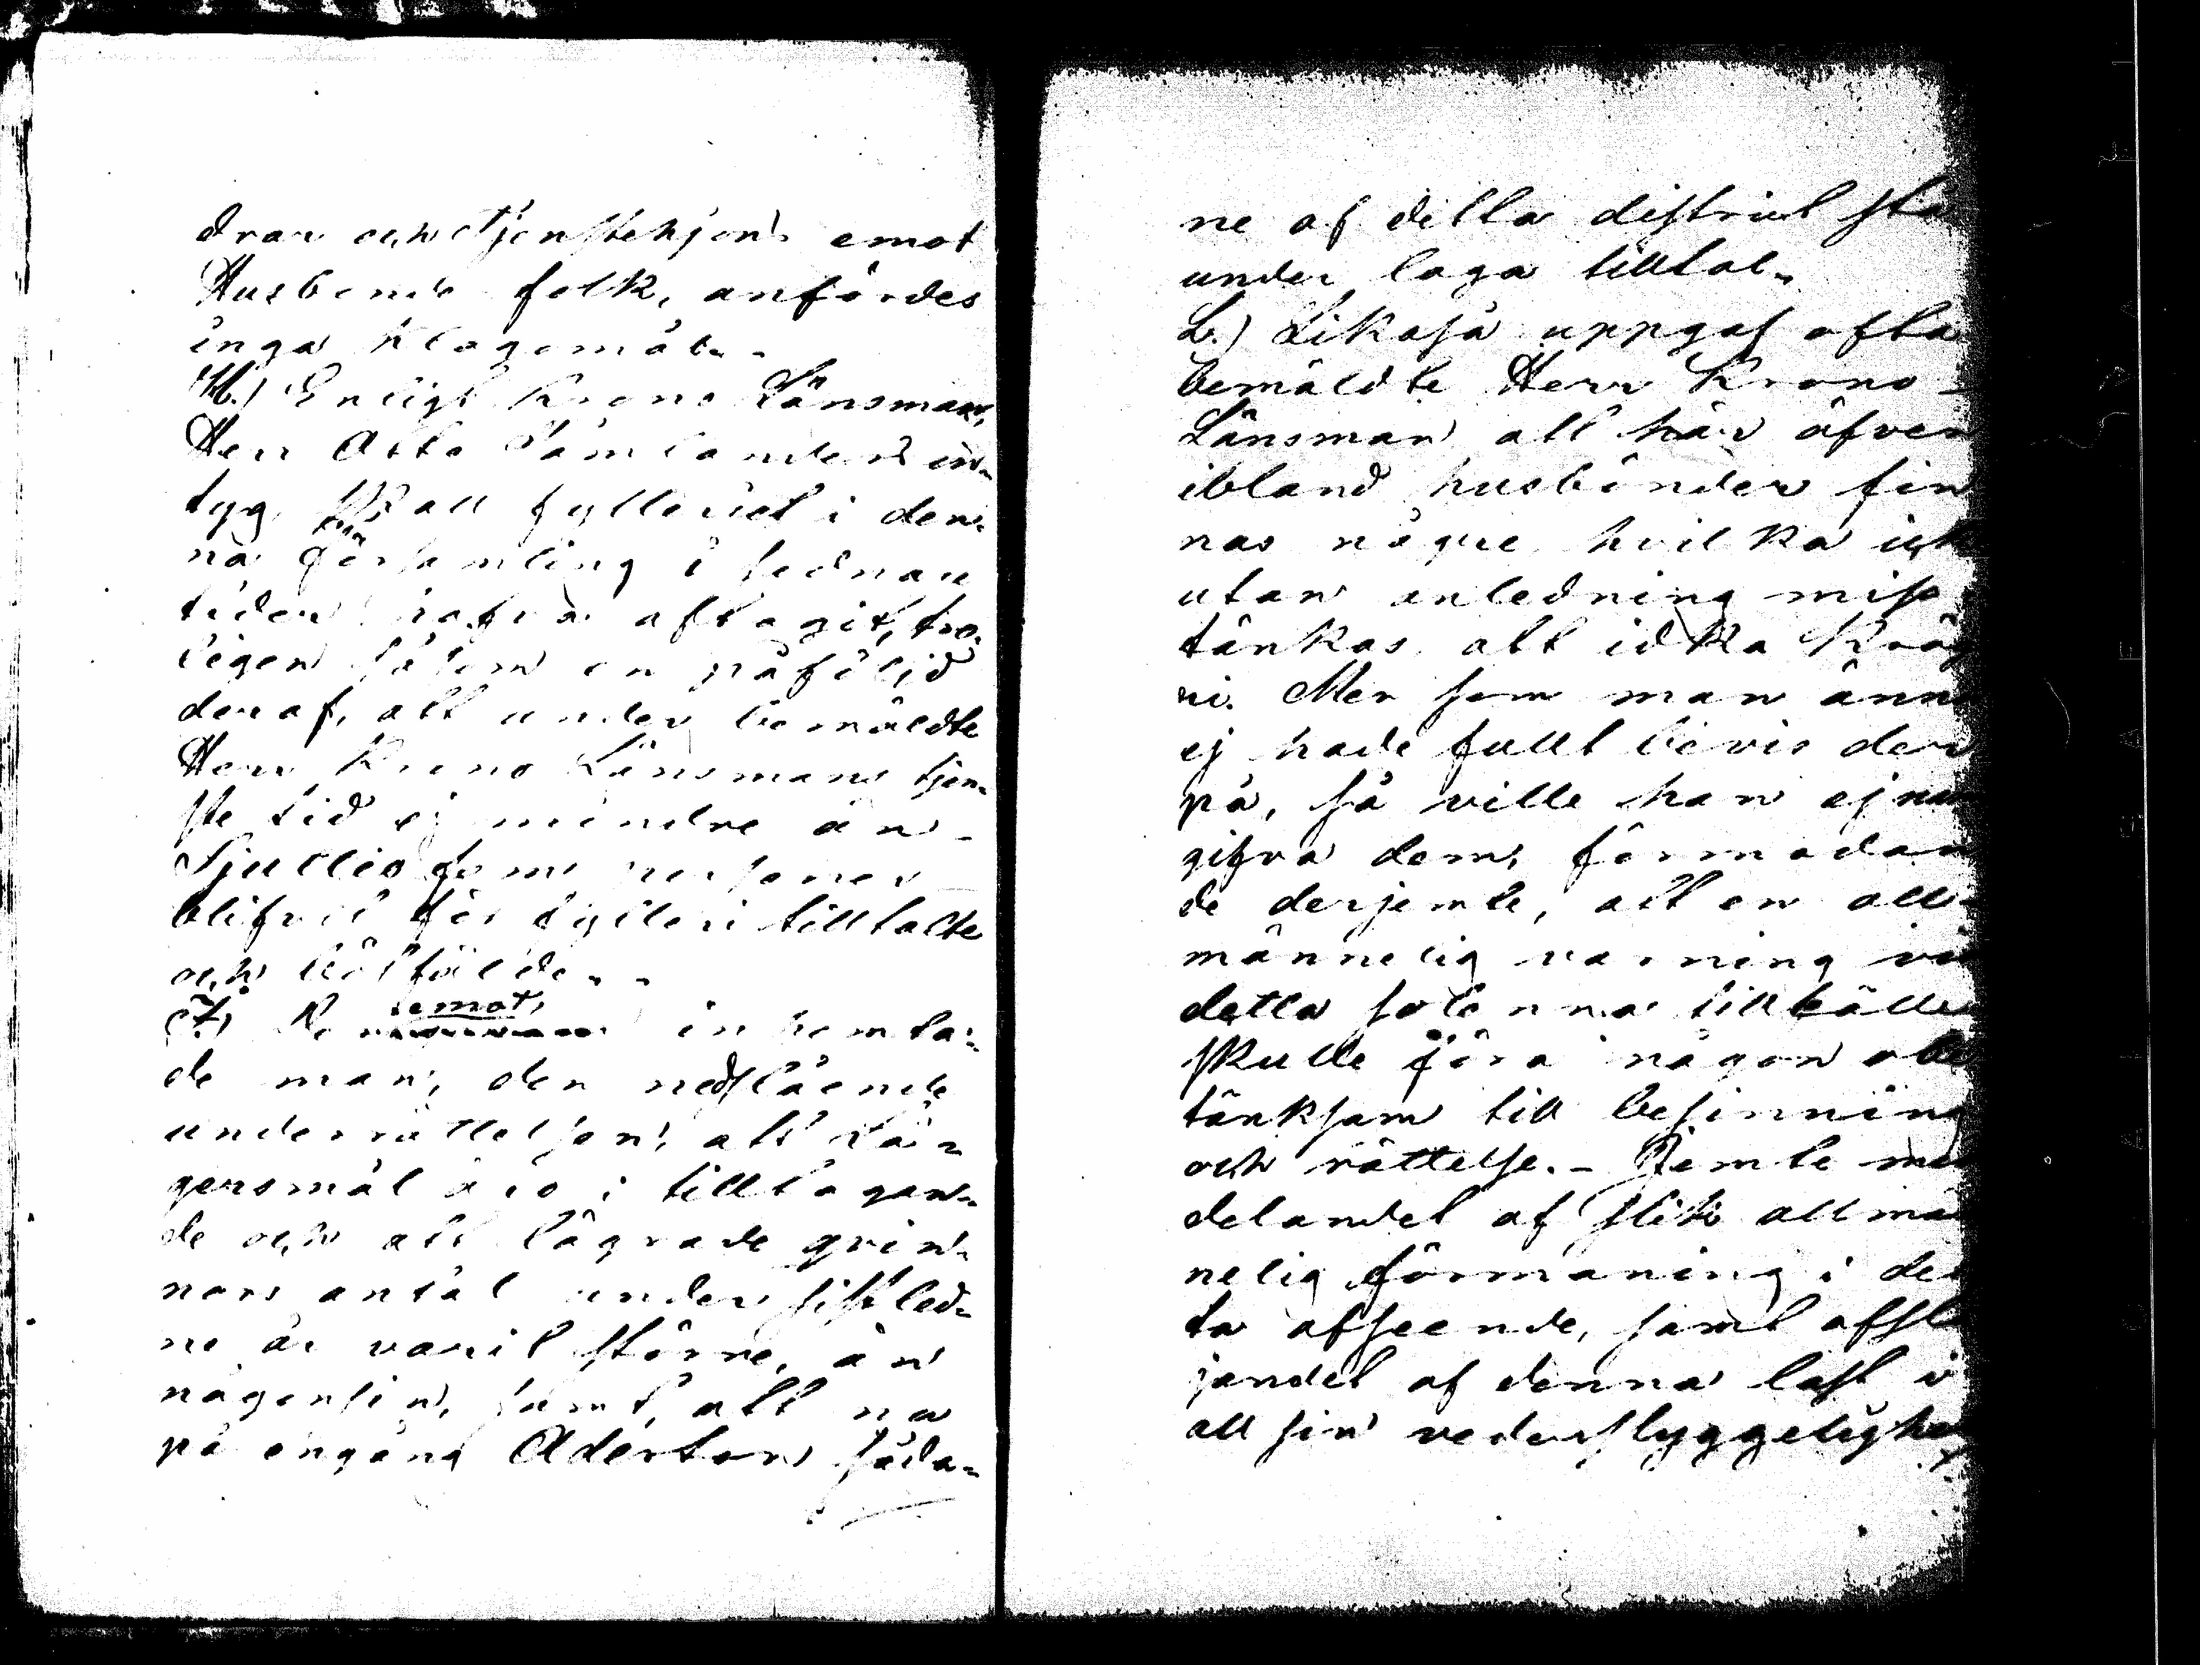 drar och tjenstehjons emot
Husbonde folk, anfördes
inga klagomål.
H.) Enligt Krono Länsman,
Herr Asta in-
tyg, skall fylleriet i den-
na församling i sednare
tider hafva aftagit, tro-
ligen såsom en påföljd
deraf, att under bemäldte
Herr Krono Länsmans tjen-
ste tid ej mindre än
Sjuttio fem personer
blifvit för fylleri tilltalte
och bötfälde.
emot
inhemta-
de man, den nedslående
underrättelsen, att Lä-
gersmål äro i tilltagan-
de och att lägrade qvin-
nors antal under sistled-
ne år varit större, än
någonsin, samt, att nu
på engång Aderton såda-
ne af detta district stå
under laga tilltal.
L.) Likaså uppgaf ofta
bemäldte Herr Krono-
Länsman att här äfven
ibland husbönder fin
nas någre, hvilka ick
utan anledning miss
tänkas att idka Kröge
ri. Men som man ännu
ej hade fullt bevis der
på, så ville han ej nu
gifva dem, förmodan
de derjemte, att en all-
männelig varning vid
detta solenna tillfälle
skulle föra någon obe
tänksam till besinning
och rättelse. - Jemte med
delandet af slik allmä
nelig förmaning i det
ta afseende, samt afslö
jandet af denna last i
all sin vederstyggelighet